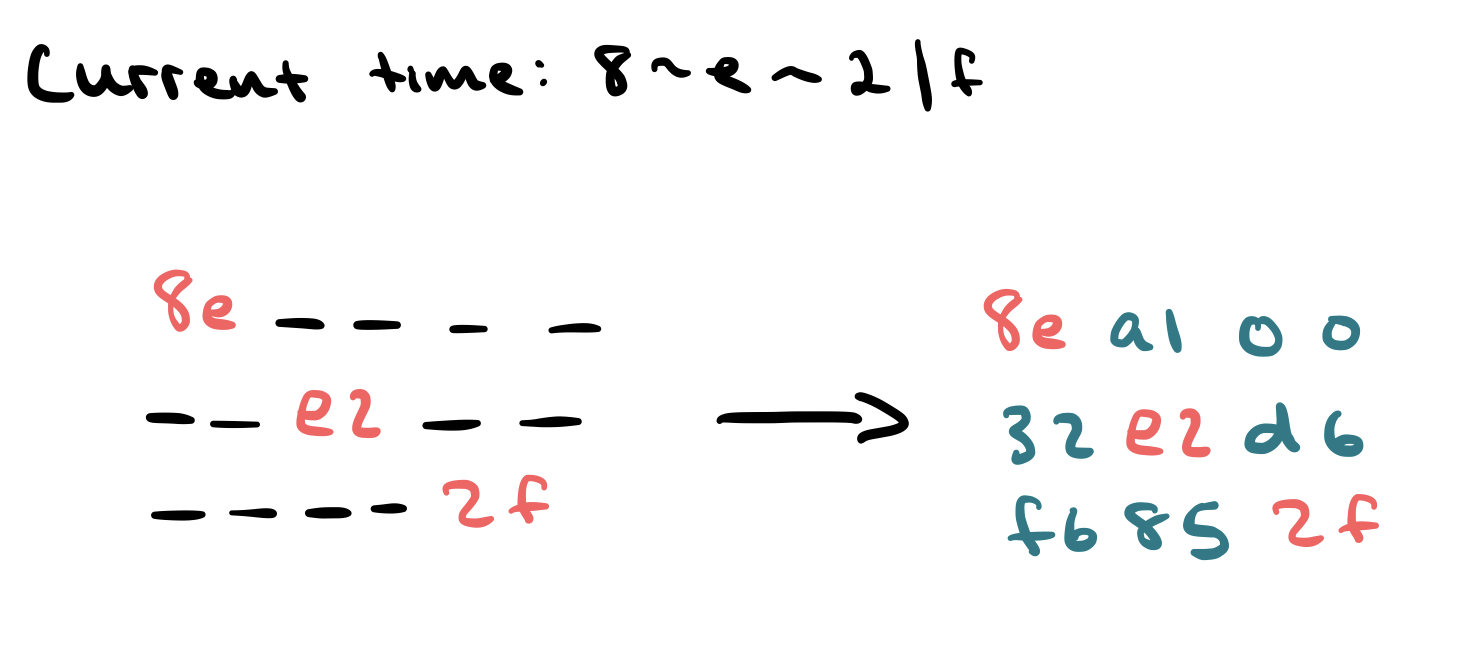 Current time: 8~e~2|f
8e _ _ _ _
_ _ e2 _ _
_ _ _ _ 2f
8e a1 00
32 e2 d6
f6 85 2f